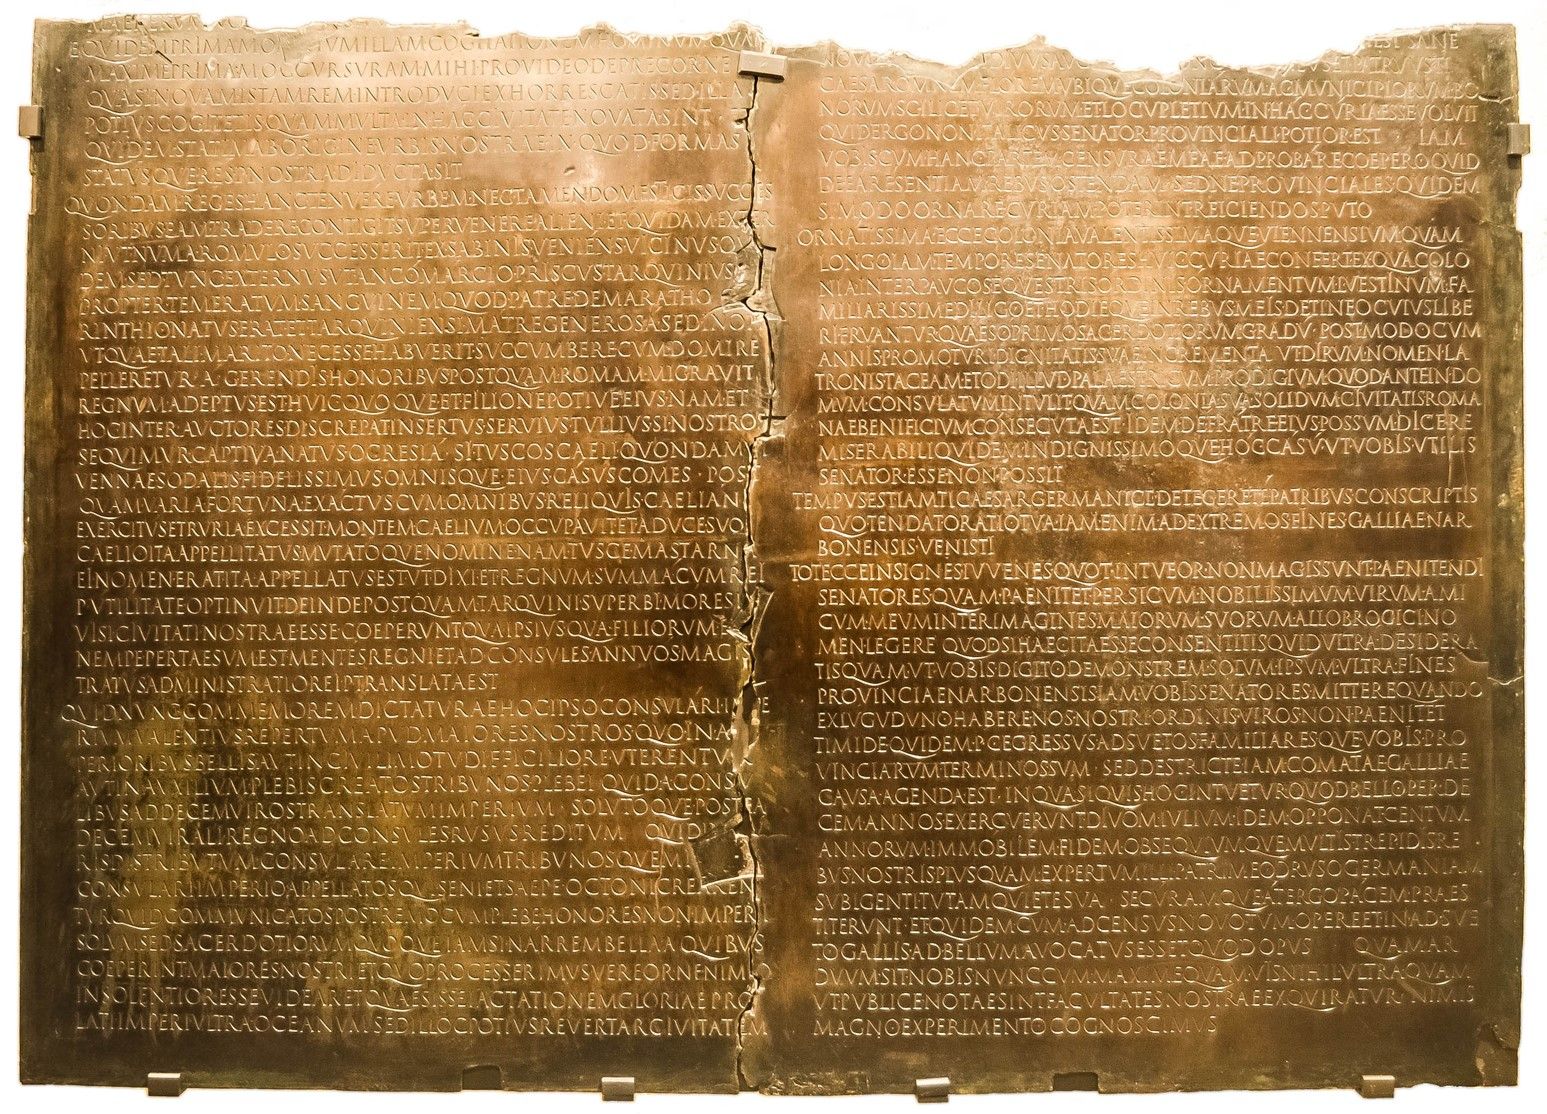 MAE RERVM NOSTR
EQVIDEM PRIMAM OMNIVM ILLAM COGITATIONEM HOMINVM QVAM
MAXIME PRIMAM OCCVRSVRAM MIHI PROVIDEO DEPRECOR NE
QVASI NOVAM ISTAM REM INTRODVCI EXHORRESCATIS SED ILLA
POTIVS COGITETIS QVAM MVLTA IN HAC CIVITATE NOVATA SINT
QVIDEM STATIM AB ORIGINE VRBIS NOSTRAE IN QVOD FORMAS
STATVSQVE RES P NOSTRA DIDVCTA SIT
QVONDAM REGES HANC TENVERE VRBEM NEC TAMEN DOMESTICIS SVCCES
SORIBVS EAM TRADERE CONTIGIT SVPERVENERE ALIENI ET QVIDAM EXTER
NI VT NVMA ROMVLO SVCCESSERIT EX SABINIS VENIENS VICINVS QV
DEM SED TVNC EXTERNVS VT ANCO MARCIO PRISCVS TARQVINIVS
PROPTER TEMERATVM SANGVINEM QVOD PATRE DEMARATHO
RINTHIO NATVS ERAT ET TARQVINIENSI MATRE GENEROSA SED INOP
VT QVAE TALI MARITO NECESSE HABVERIT SVCCVMBERE CVM DOMI RE
PELLERETVR A GERENDIS HONORIBVS POSTQVAM ROMAM MIGRAVIT
REGNVM ADEPTVS EST HVIC QVOQVE ET FILIO NEPOTIVE EIVS NAM ET
HOC INTER AVCTORES DISCREPAT INSERTVS SERVIVS TVLLIVS SI NOSTROS
SEQVIMVR CAPTIVA NATVS OCRESIA SI TVSCOS CAELI QVONDAM VI
VENNAE SODALIS FIDELISSIMVS OMNISQVE EIVS CASVS COMES POST
QVAM VARIA FORTVNA EXACTVS CVM OMNIBVS RELIQVIS CAELIANI
EXERCITVS ETRVRIA EXCESSIT MONTEM CAELIVM OCCVPAVIT ET A DVCE SVO
CAELIO ITA APPELLITATVS MVTATOQVE NOMINE NAM TVSCE MASTARNA
EI NOMEN ERAT ITA APPELLATVS EST VT DIXI ET REGNVM SVMMA CVM REI
P VTILITATE OPTINVIT DEINDE POSTQVAM TARQVINI SVPERBI MORES IN
VISI CIVITATI NOSTRAE ESSE COEPERVNT QVA IPSIVS QVA FILIORVM EI
NEMPE PERTAESVM EST MENTES REGNI ET AD CONSVLES ANNVOS MAGIS
TRATVS ADMINISTRATIO REI P TRANSLATA EST
QVID NVNC COMMEMOREM DICTATVRAE HOC IPSO CONSVLARI IMPE
RIVM VALENTIVS REPERTVM APVD MAIORES NOSTROS QVO IN A
PERIORIBVS BELLIS AVT IN CIVILI MOTV DIFFICILIORE VTERENTVR
AVT IN AVXILIVM PLEBIS CREATOS TRIBVNOS PLEBEI QVID A CONSV
LIBVS AD DECEMVIROS TRANSLATVM IMPERIVM SOLVTOQVE POSTEA
DECEMVIRALI REGNO AD CONSVLES RVSVS REDITVM QVID
RIS DISTRIBVTVM CONSVLARE IMPERIVM TRIBVNOSQVE MI
CONSVLARI IMPERIO APPELLATOS QVI SENI ET SAEPE OCTONI CREAREN
TVR QVID COMMVNICATOS POSTREMO CVM PLEBE HONORES NON IMPERI
SOLVM SED SACERDOTIORVM QVOQVE IAM SI NARREM BELLA A QVIBVS
COEPERINT MAIORES NOSTRI ET QVO PROCESSERIMVS VEREOR NE NIMIO
INSOLENTIOR ESSE VIDEAR ET QVAESISSE IACTATIONEM GLORIAE PRO
LATI IMPERI VLTRA OCEANVM SED ILLOC POTIVS REVERTAR CIVITATEM
EST SANE
NOVO DIVVS AVG PATRVVS TI
CAESAR OMNEM FLOREM VBIQVE COLONIARVM AC MVNICIPIORVM BO
NORVM SCILICET VIRORVM ET LOCVPLETIVM IN HAC CVRIA ESSE VOLVIT
QVID ERGO NON ITALICVS SENATOR PROVINCIALI POTIOR EST IAM
VOBIS CVM HANC PARTEM CENSVRAE MEAE ADPROBARE COEPERO QVID
DE EA RE SENTIAM REBVS OSTENDAM SED NE PROVINCIALES QVIDEM
SI MODO ORNARE CVRIAM POTERINT REICIENDOS PVTO
ORNATISSIMA ECCE COLONIA VALENTISSIMAQVE VIENNENSIVM QVAM
LONGO IAM TEMPORE SENATORES HVIC CVRIAE CONFERT EX QVA COLO
NIA INTER PAVCOS EQVESTRIS ORDINIS ORNAMENTVM L VESTINVM FA
MILIARISSIME DILIGO ET HODIEQVE IN REBVS MEIS DETINEO CVIVS LIBE
RI FRVANTVR QVAESO PRIMO SACERDOTIORVM GRADV POST MODO CVM
ANNIS PROMOTVRI DIGNITATIS SVAE INCREMENTA VT DIRVM NOMEN LA
TRONIS TACEAM ET ODI ILLVD PALAESTRICVM PRODIGIVM QVOD ANTE IN DO
MVM CONSVLATVM INTVLIT QVAM COLONIA SVA SOLIDVM CIVITATIS ROMA
NAE BENIFICIVM CONSECVTA EST IDEM DE FRATRE EIVS POSSVM DICERE
MISERABILI QVIDEM INDIGNISSIMOQVE HOC CASV VT VOBIS VTILIS
SENATOR ESSE NON POSSIT
TEMPVS EST IAM TI CAESAR GERMANICE DETEGERE TE PATRIBVS CONSCRIPTIS
QVO TENDAT ORATIO TVA IAM ENIM AD EXTREMOS FINES GALLIAE NAR
BONENSIS VENISTI
TOT ECCE INSIGNES IVVENES QVOT INTVEOR NON MAGIS SVNT PAENITENDI
SENATORES QVAM PAENITET PERSICVM NOBILISSIMVM VIRVM AMI
CVM MEVM INTER IMAGINES MAIORVM SVORVM ALLOBROGICI NO
MEN LEGERE QVOD SI HAEC ITA ESSE CONSENTITIS QVID VLTRA DESIDERA
TIS QVAM VT VOBIS DIGITO DEMONSTREM SOLVM IPSVM VLTRA FINES
PROVINCIAE NARBONENSIS IAM VOBIS SENATORES MITTERE QVANDO
EX LVGVDVNO HABERE NOS NOSTRI ORDINIS VIROS NON PAENITET
TIMIDE QVIDEM P C EGRESSVS ADSVETOS FAMILIARESQVE VOBIS PRO
VINCIARVM TERMINOS SVM SED DESTRICTE IAM COMATAE GALLIAE
CAVSA AGENDA EST IN QVA SI QVIS HOC INTVETVR QVOD BELLO PER DE
CEM ANNOS EXERCVERVNT DIVOM IVLIVM IDEM OPPONAT CENTVM
ANNORVM IMMOBILEM FIDEM OBSEQVIVMQVE MVLTIS TREPIDIS RE
BVS NOSTRIS PLVS QVAM EXPERTVM ILLI PATRI MEO DRVSO GERMANIAM
SVBIGENTI TVTAM QVIETE SVA SECVRAMQVE A TERGO PACEM PRAES
TITERVNT ET QVIDEM CVM AD CENSVS NOVO TVM OPERE ET INADSVE
TO GALLIS AD BELLVM AVOCATVS ESSET QVOD OPVS QVAM AR
DVVM SIT NOBIS NVNC CVM MAXIME QVAMVIS NIHIL VLTRA QVAM
VT PVBLICE NOTAE SINT FACVLTATES NOSTRAE EXQVIRATVR NIMIS
MAGNO EXPERIMENTO COGNOSCIMVS